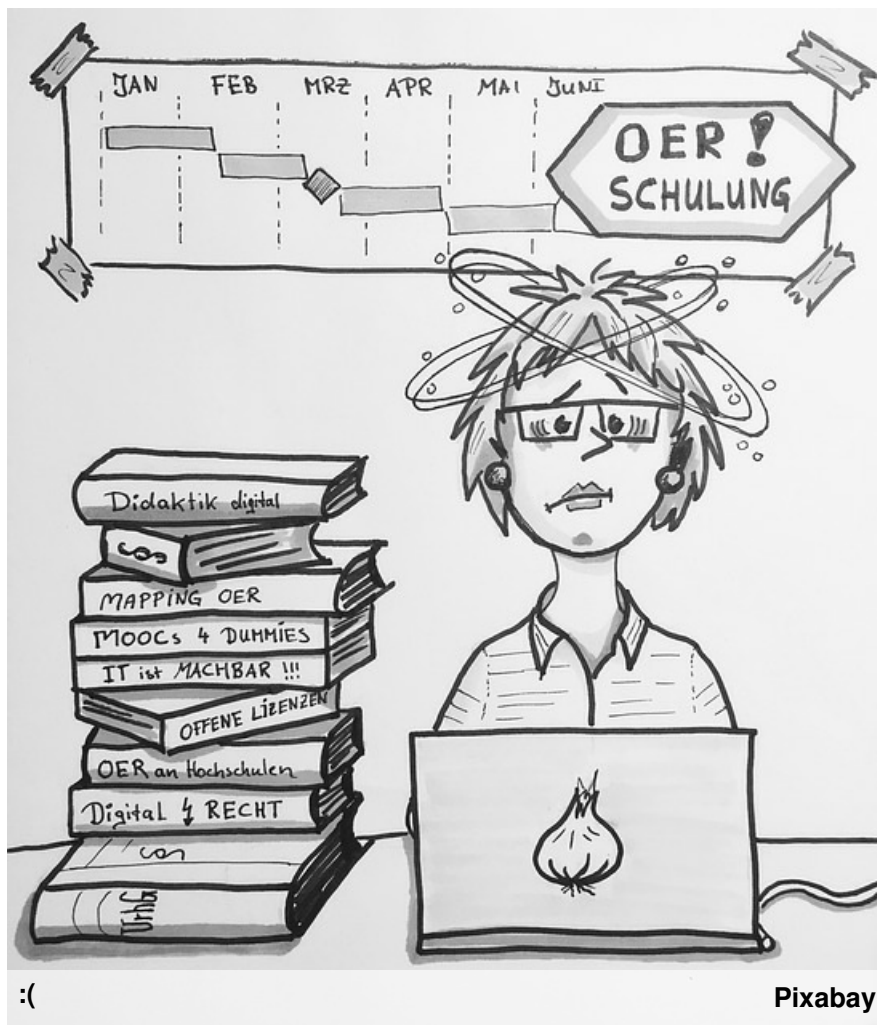 JAN FEB MRZ APR MAI JUNI
OER !
SCHULUNG
Didaktik digital
§
MAPPING OER
MOOCs 4 DUMMIES
IT ist MACHBAR !!!
OFFENE LIZENZEN
OER an Hochschulen
Digital ↯ RECHT
§
UrhG
:( Pixabay